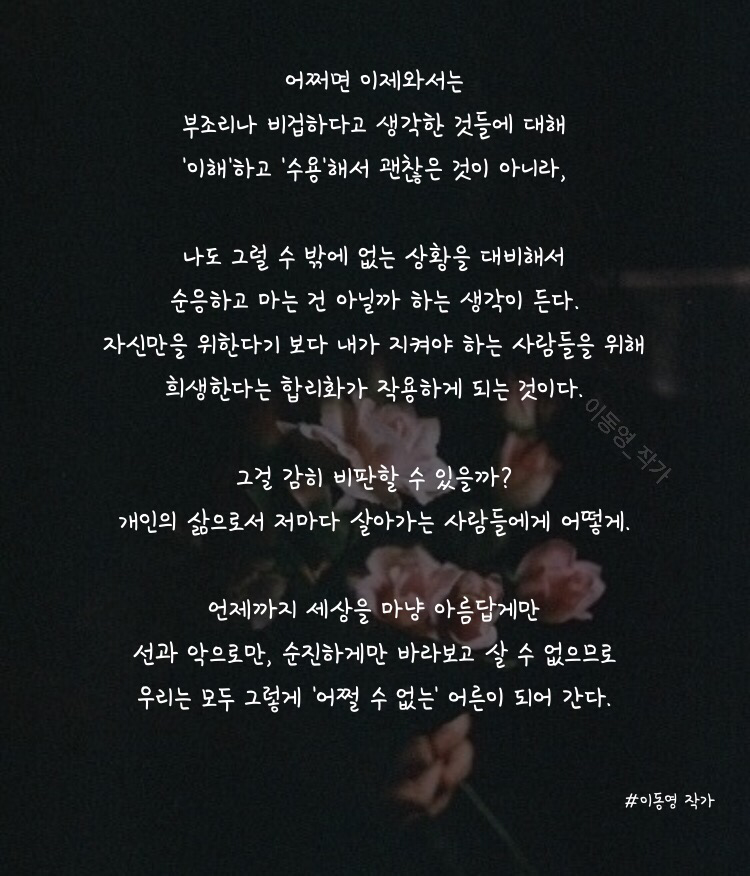 어쩌면 이제와서는
부조리나 비겁하다고 생각한 것들에 대해
'이해'하고 '수용'해서 괜찮은 것이 아니라,
나도 그럴 수 밖에 없는 상황을 대비해서
순응하고 마는 건 아닐까 하는 생각이 든다.
자신만을 위한다기 보다 내가 지켜야 하는 사람들을 위해
희생한다는 합리화가 작용하게 되는 것이다.
이동영_작가
그걸 감히 비판할 수 있을까?
개인의 삶으로서 저마다 살아가는 사람들에게 어떻게.
언제까지 세상을 마냥 아름답게만
선과 악으로만, 순진하게만 바라보고 살 수 없으므로
우리는 모두 그렇게 '어쩔 수 없는' 어른이 되어 간다.
#이동영 작가